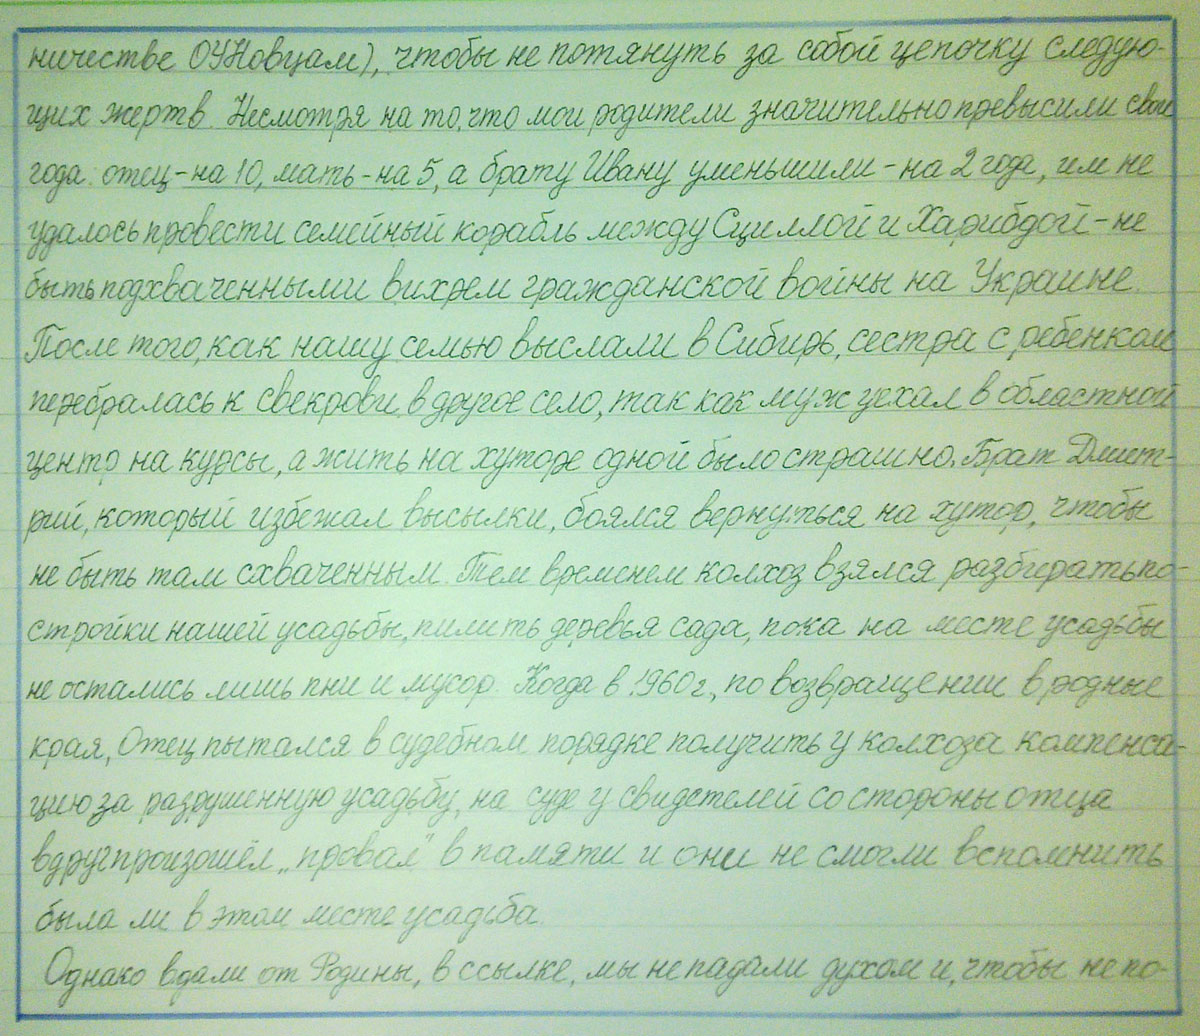 ничестве ОУНовцам), чтобы не потянуть за собой цепочку следую-
щих жертв. Несмотря на то, что мои родители значительно превысили свои
года: отец - на 10, мать - на 5, а брату Ивану уменьшили - на 2 года, им не
удалось провести семейный корабль между Сциллой и Харибдой - не
быть подхваченными вихрем гражданской войны на Украине.
После того, как нашу семью выслали в Сибирь, сестра с ребенком
перебралась к свекрови в другое село, так как муж уехал в областной
центр на курсы, а жить на хуторе одной было страшно. Брат Дмит-
рий, который избежал высылки, боялся вернуться на хутор, чтобы
не быть там схваченным. Тем временем колхоз взялся разбирать по-
стройки нашей усадьбы, пилить деревья сада, пока на месте усадьбы
не остались лишь пни и мусор. Когда в 1960 г., по возвращении в родные
края, Отец пытался в судебном порядке получить у колхоза компенса-
цию за разрушенную усадьбу, на суде у свидетелей со стороны отца
вдруг произошёл „провал" в памяти и они не смогли вспомнить
была ли в этом месте усадьба.
Однако вдали от Родины, в ссылке, мы не падали духом и, чтобы не по-